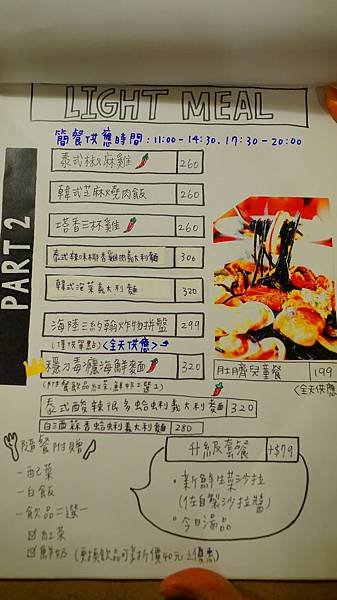 LIGHT MEAL
簡餐供應時間:11:00-14:30. 17:30-20:00
PART 2
泰式椒麻雞 260
韓式芝麻燒肉飯 260
塔香三杯雞 260
泰式辣味椰香雞肉義大利麵 300
韓式泡菜義大利麵 320
海陸三約翰炸物拼盤 299
(僅供單點)<全天供應>
穩力毒濃海鮮麵 360
(附餐飲品紅茶.鮮奶2選1)
泰式酸辣很多蛤蜊義大利麵 320
白酒蒜香蛤蜊義大利麵 280
肚臍兒童餐 199
<全天供應
隨餐附贈
-配菜
-白飯
-飲品二選一
紅茶
鮮奶 (更換飲品可享折價40元之優惠)
升級套餐 +$79
·新鮮生菜沙拉
(佐自製沙拉醬)
·今日湯品